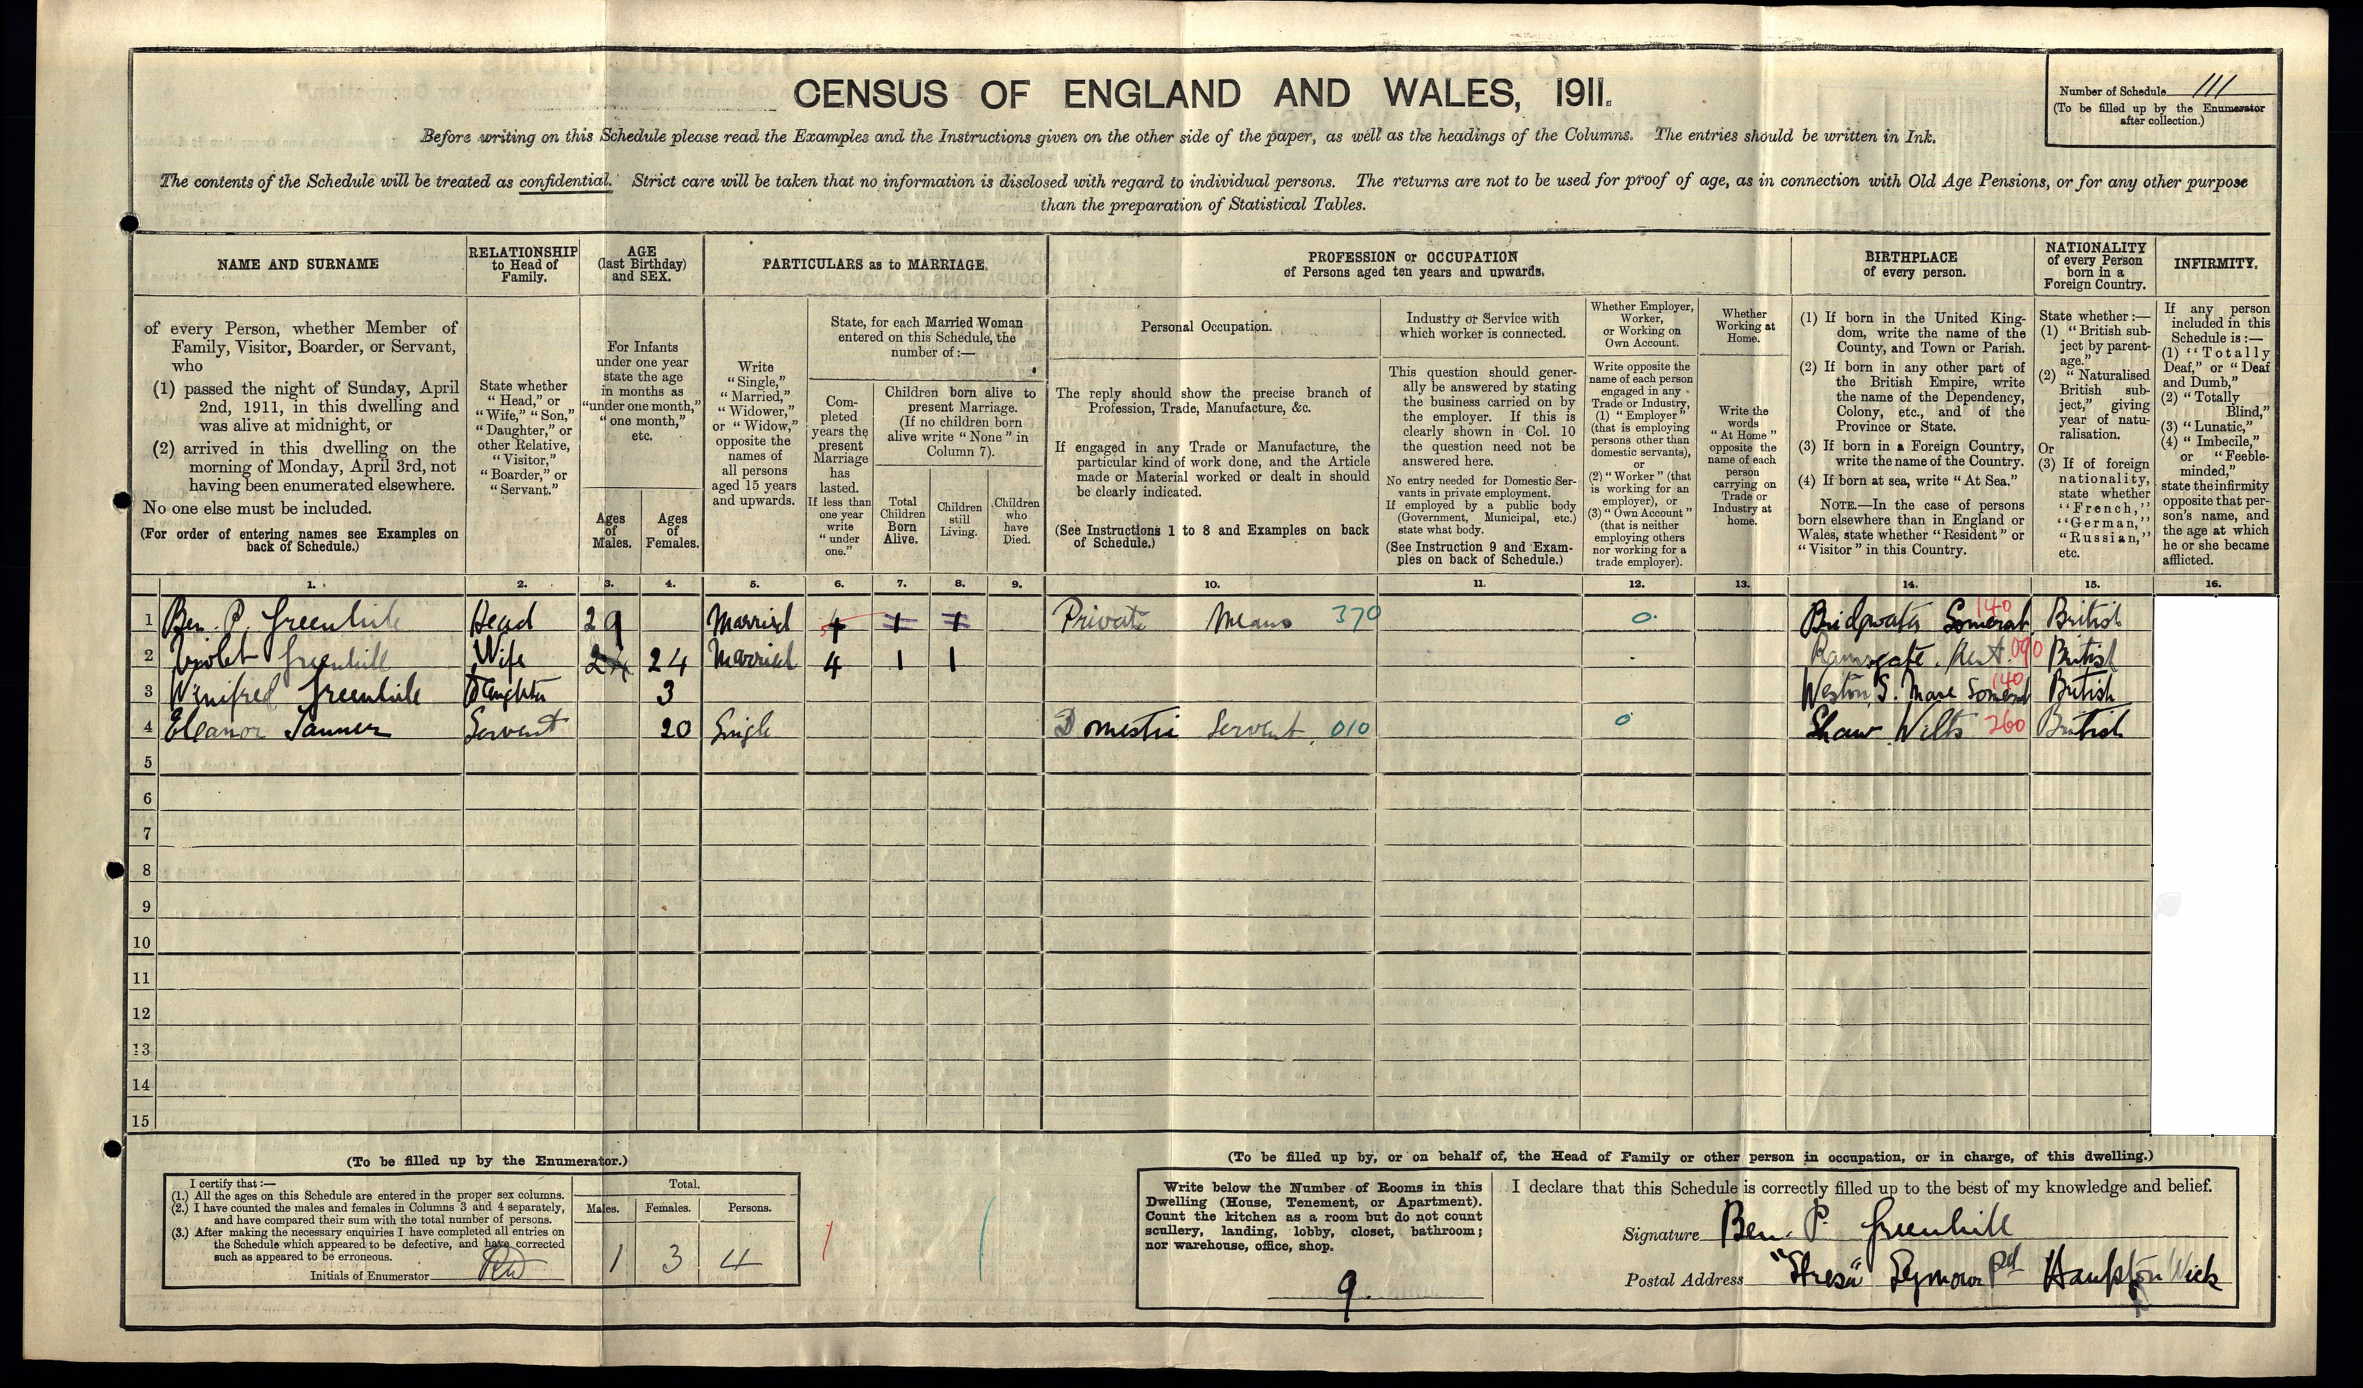 CENSUS OF ENGLAND AND WALES, 1911.
Number of Schedule 111
(To be filled up by the Enumerator
after collection.)
Before writing on this Schedule please read the Examples and the Instructions given on the other side of the paper, as well as the headings of the Columns. The entries should be written in Ink.
The contents of the Schedule will be treated as confidential. Strict care will be taken that no information is disclosed with regard to individual persons. The returns are not to be used for proof of age, as in connection with Old Age Pensions, or for any other purpose
than the preparation of Statistical Tables.
NAME AND SURNAME
of every Person, whether Member of
Family, Visitor, Boarder, or Servant,
who
(1) passed the night of Sunday, April
2nd, 1911, in this dwelling and
was alive at midnight, or
(2) arrived in this dwelling on the
morning of Monday, April 3rd, not
having been enumerated elsewhere.
No one else must be included.
(For order of entering names see Examples on
back of Schedule.)
RELATIONSHIP
to Head of
Family.
State whether
"Head," or
"Wife," "Son,"
"Daughter," or
other Relative,
"Visitor,"
"Boarder," or
"Servant."
AGE
(last Birthday)
and SEX.
For Infants
under one year
state the age
in months as
"under one month,"
"one month,"
etc.
Ages
of
Males.
Ages
of
Females.
PARTICULARS as to MARRIAGE.
Write
"Single,"
"Married,"
"Widower,"
or "Widow,"
opposite the
names of
all persons
aged 15 years
and upwards.
State, for each Married Woman
entered on this Schedule, the
number of:—
Com-
pleted
years the
present
Marriage
has
lasted.
If less than
one year
write
"under
one."
Children born alive to
present Marriage.
(If no children born
alive write "None" in
Column 7).
Total
Children
Born
Alive.
Children
still
Living.
Children
who
have
Died.
PROFESSION or OCCUPATION
of Persons aged ten years and upwards.
Personal Occupation.
The reply should show the precise branch of
Profession, Trade, Manufacture, &c.
If engaged in any Trade or Manufacture, the
particular kind of work done, and the Article
made or Material worked or dealt in should
be clearly indicated.
(See Instructions 1 to 8 and Examples on back
of Schedule.)
Industry or Service with
which worker is connected.
This question should gener-
ally be answered by stating
the business carried on by
the employer. If this is
clearly shown in Col. 10
the question need not be
answered here.
No entry needed for Domestic Ser-
vants in private employment.
If employed by a public body
(Government, Municipal, etc.)
state what body.
(See Instruction 9 and Exam-
ples on back of Schedule.)
Whether Employer,
Worker,
or Working on
Own Account.
Write opposite the
name of each person
engaged in any
Trade or Industry,
(1) "Employer"
(that is employing
persons other than
domestic servants),
or
(2) "Worker" (that
is working for an
employer), or
(3) "Own Account"
(that is neither
employing others
nor working for a
trade employer).
Whether
Working at
Home.
Write the
words
"At Home"
opposite the
name of each
person
carrying on
Trade or
Industry at
home.
BIRTHPLACE
of every person.
(1) If born in the United King-
dom, write the name of the
County, and Town or Parish.
(2) If born in any other part of
the British Empire, write
the name of the Dependency,
Colony, etc., and of the
Province or State.
(3) If born in a Foreign Country,
write the name of the Country.
(4) If born at sea, write "At Sea."
NOTE.—In the case of persons
born elsewhere than in England or
Wales, state whether "Resident" or
"Visitor" in this Country.
NATIONALITY
of every Person
born in a
Foreign Country.
State whether:—
(1) "British sub-
ject by parent-
age."
(2) "Naturalised
British sub-
ject," giving
year of natu-
ralisation.
Or
(3) If of foreign
nationality,
state whether
"French,"
"German,"
"Russian,"
etc.
INFIRMITY.
If any person
included in this
Schedule is:—
(1) "Totally
Deaf," or "Deaf
and Dumb,"
(2) "Totally
Blind,"
(3) "Lunatic,"
(4) "Imbecile,"
or "Feeble-
minded,"
state the infirmity
opposite that per-
son's name, and
the age at which
he or she became
afflicted.
1. 2. 3. 4. 5. 6. 7. 8. 9. 10. 11. 12. 13. 14. 15. 16.
1 Ben. P. Greenhill Head 29 Married 4 1 1 Private Means 370 0 Bridgwater Somerset 140 British
2 Violet Greenhill Wife 24 24 Married 4 1 1 Ramsgate. Kent. 090 British
3 Winifred Greenhill Daughter 3 Weston S. Mare Somerset 140 British
4 Eleanor Tanner Servant 20 Single Domestic Servant 010 0 Shaw Wilts 260 British
5
6
7
8
9
10
11
12
13
14
15
(To be filled up by the Enumerator.)
I certify that:—
(1.) All the ages on this Schedule are entered in the proper sex columns.
(2.) I have counted the males and females in Columns 3 and 4 separately,
and have compared their sum with the total number of persons.
(3.) After making the necessary enquiries I have completed all entries on
the Schedule which appeared to be defective, and have corrected
such as appeared to be erroneous.
Initials of Enumerator
Total.
Males. Females. Persons.
1 3 4
(To be filled up by, or on behalf of, the Head of Family or other person in occupation, or in charge, of this dwelling.)
Write below the Number of Rooms in this
Dwelling (House, Tenement, or Apartment).
Count the kitchen as a room but do not count
scullery, landing, lobby, closet, bathroom;
nor warehouse, office, shop.
9.
I declare that this Schedule is correctly filled up to the best of my knowledge and belief.
Signature Ben. P. Greenhill
Postal Address "Stresa" Seymour Rd Hampton Wick